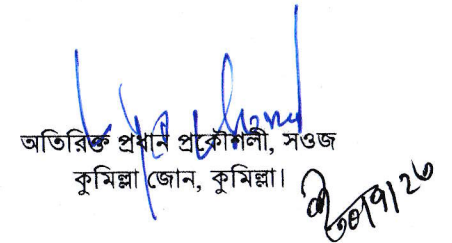 অতিরিক্ত প্রধান প্রকৌশলী, সওজ
কুমিল্লা জোন, কুমিল্লা।